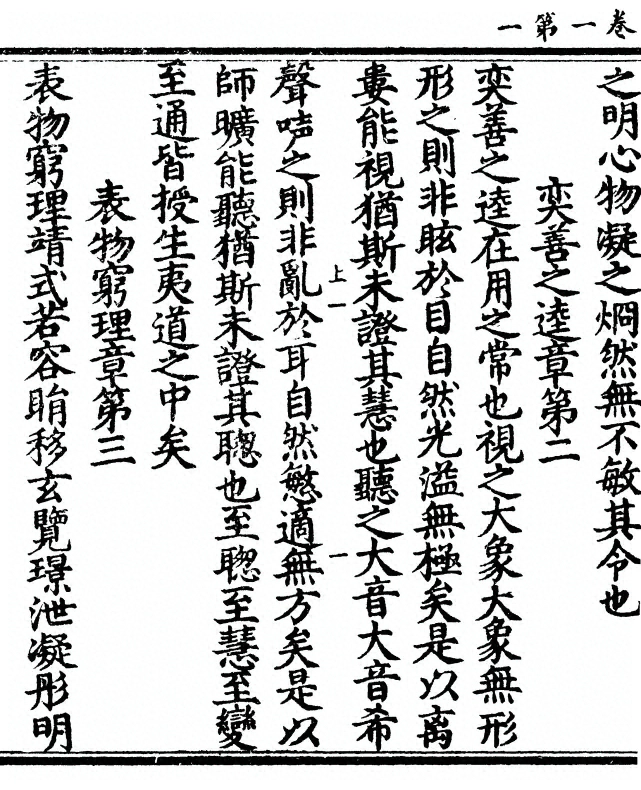 卷一第一
之明心物凝之烱然無不敏其令也
奕善之逵章第二
奕善之逵在用之常也視之大象大象無形
形之則非眩於目自然光溢無極矣是以离
婁能視猶斯未證其慧也聽之大音大音希
上一
一
聲唬之則非亂於耳自然慜適無方矣是以
師曠能聽猶斯未證其聦也至聦至慧至變
至通皆授生夷道之中矣
表物窮理章第三
表物窮理靖式若容眮移玄覽璟泄凝彤明